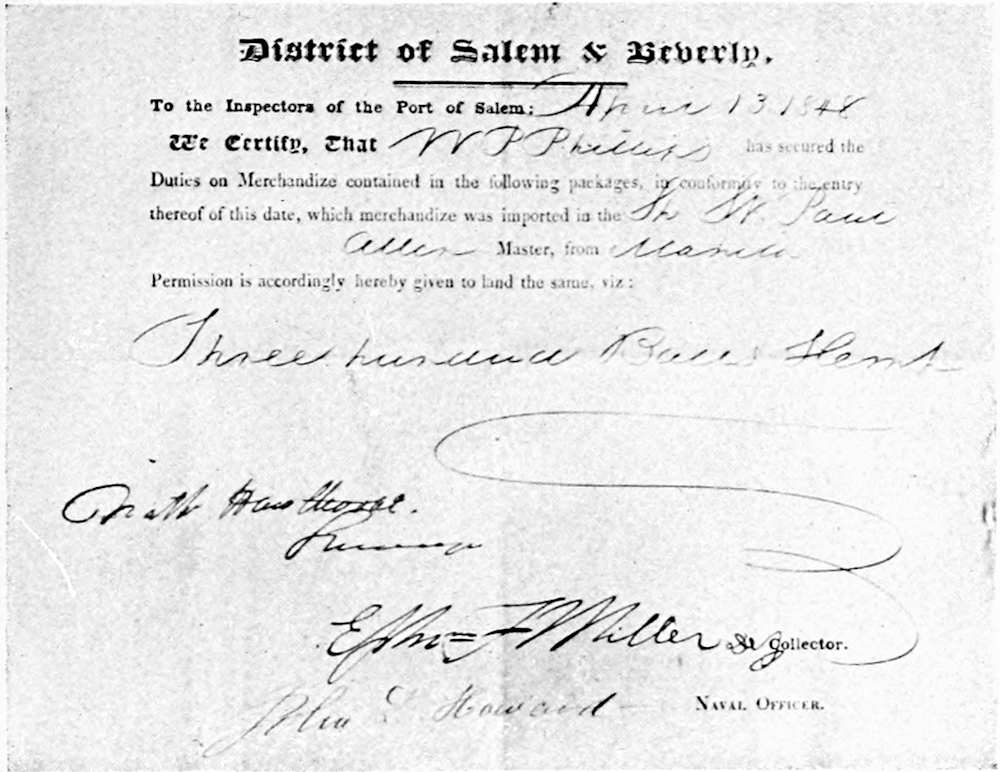 District of Salem & Beverly.
To the Inspectors of the Port of Salem; April 13 1848
We Certify, That W P Phillips has secured the
Duties on Merchandize contained in the following packages, in conformity to the entry
thereof of this date, which merchandize was imported in the Sh St. Paul
Allen Master, from Manila
Permission is accordingly hereby given to land the same, viz:
Three hundred Bales Hemp
Nath Hawthorne.
Surveyor
Ephm F Miller Collector.
John D Howard NAVAL OFFICER.